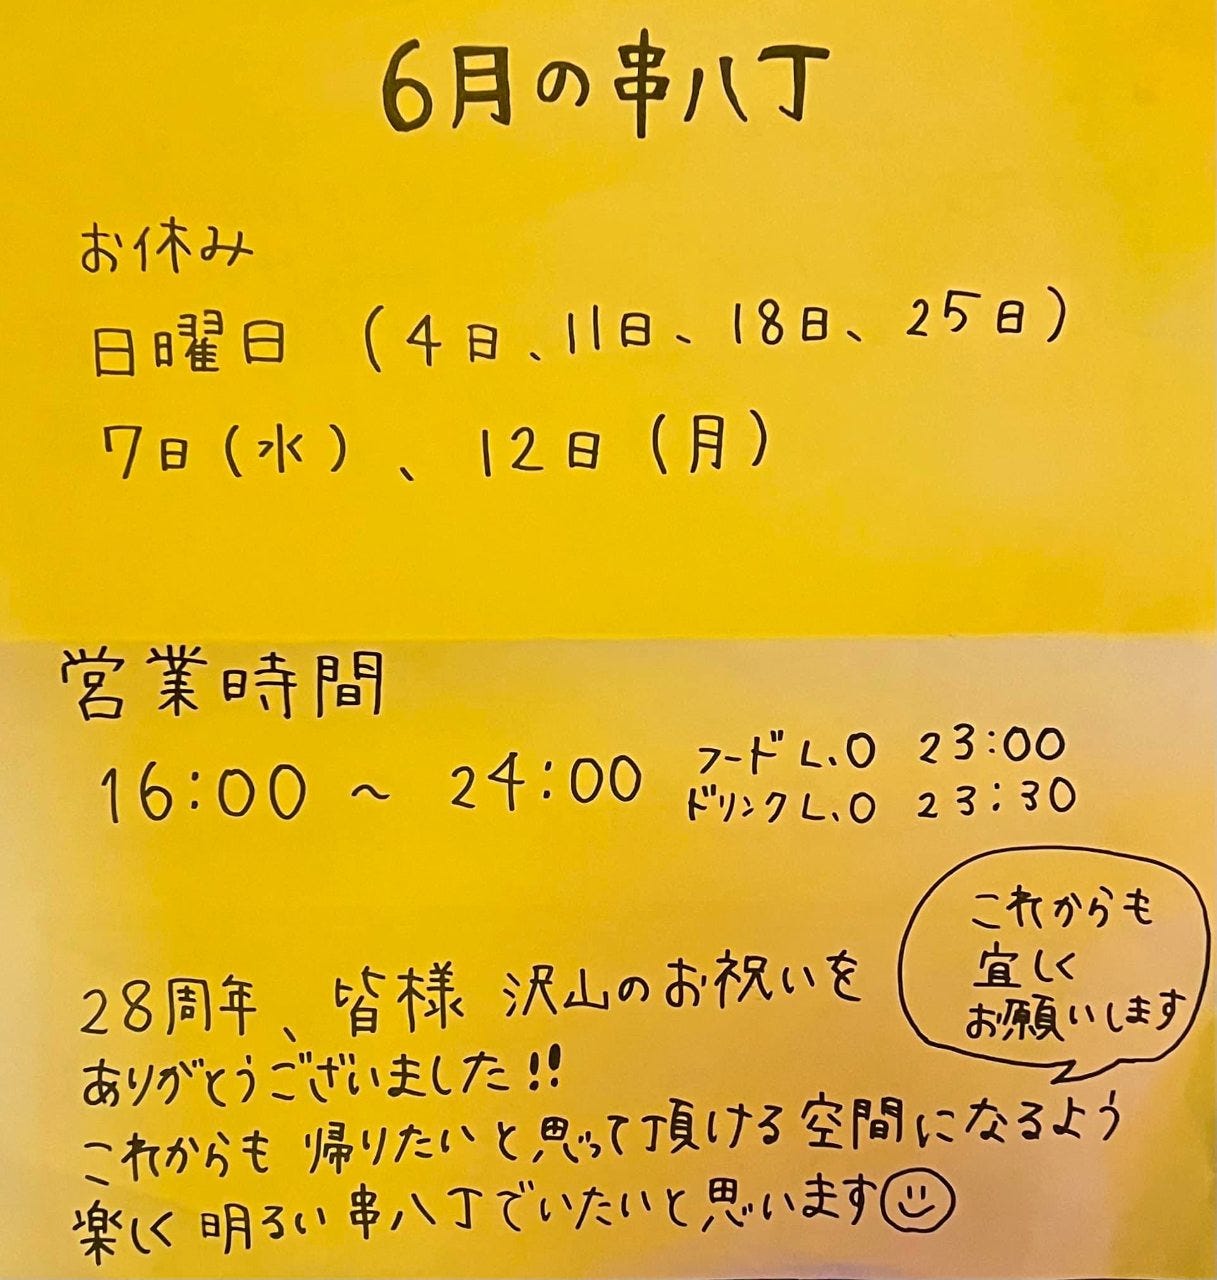 6月の串八丁
お休み
日曜日 (4日、11日、18日、25日)
7日(水)、12日(月)
営業時間
16:00 ~ 24:00
フードL.O 23:00
ドリンクL.O 23:30
これからも
宜しく
お願いします
28周年、皆様 沢山のお祝いを
ありがとうございました!!
これからも 帰りたいと思って頂ける空間になるよう
楽しく 明るい 串八丁でいたいと思います